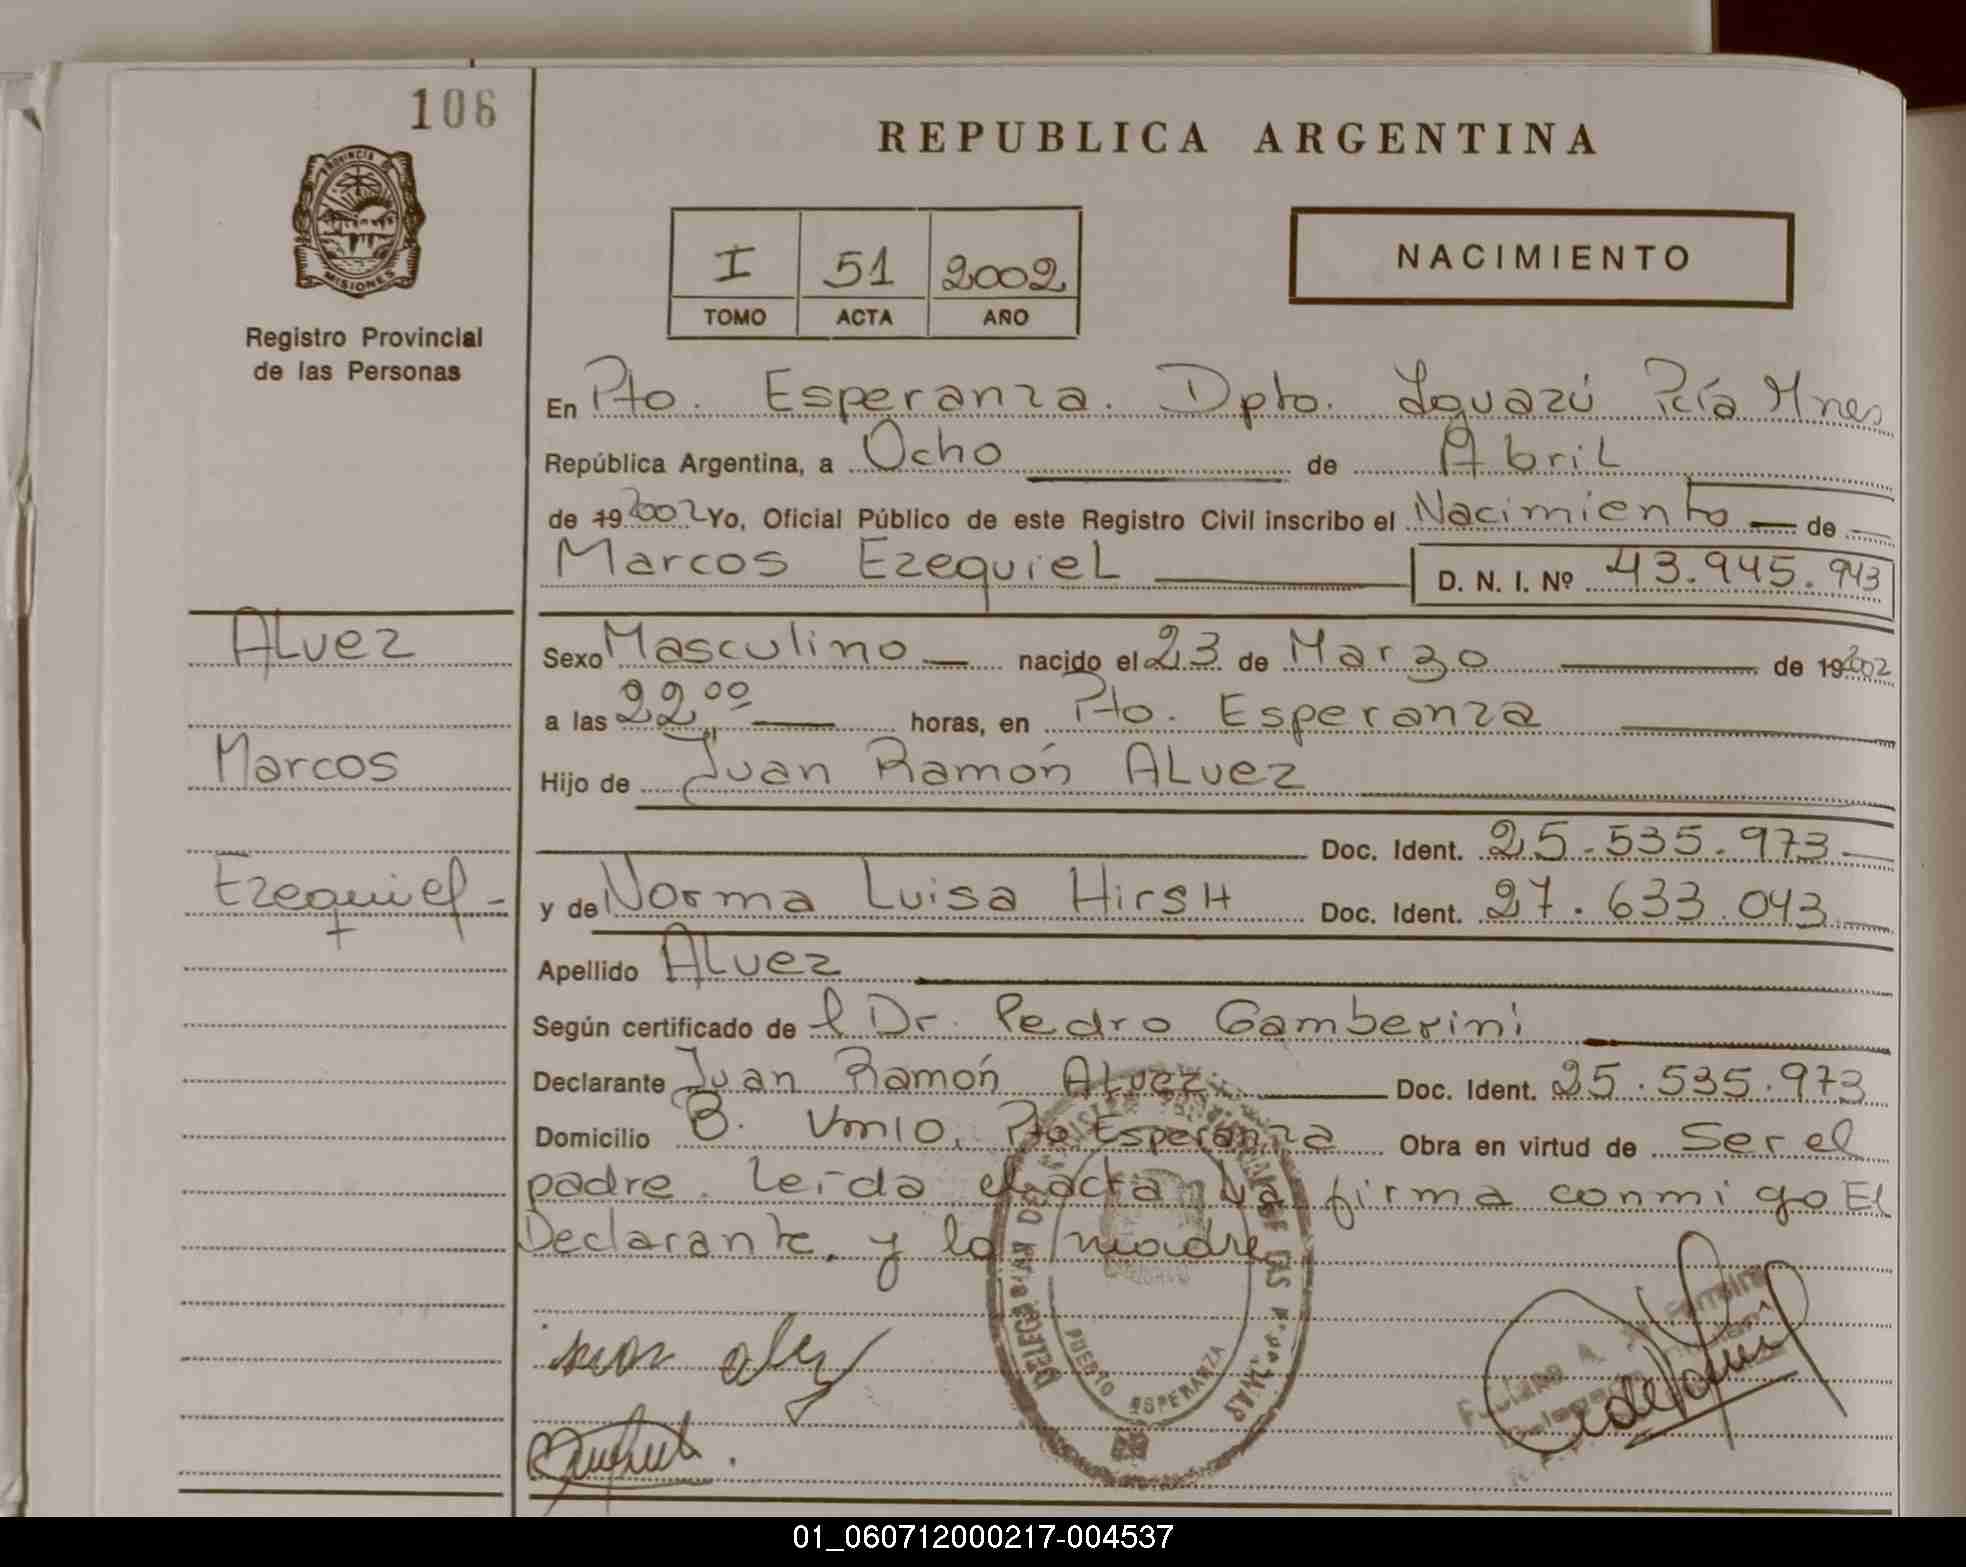 106
REPUBLICA ARGENTINA
PROVINCIA DE
MISIONES
Registro Provincial
de las Personas
I 51 2002
TOMO ACTA AÑO
NACIMIENTO
En Pto. Esperanza. Dpto. Iguazú Pcía Mnes
República Argentina, a Ocho de Abril
de 19 2002 Yo, Oficial Público de este Registro Civil inscribo el Nacimiento de
Marcos Ezequiel D. N. I. Nº 43.945.943
Alvez
Marcos
Ezequiel-
Sexo Masculino nacido el 23 de Marzo de 19 2002
a las 22 00 horas, en Pto. Esperanza
Hijo de Juan Ramón Alvez
Doc. Ident. 25.535.973
y de Norma Luisa Hirsh Doc. Ident. 27.633.043
Apellido Alvez
Según certificado de l Dr. Pedro Gamberini
Declarante Juan Ramón Alvez Doc. Ident. 25.535.973
Domicilio B. Pto Esperanza Obra en virtud de Ser el
padre. Leída el acta la firma conmigo El
Declarante. y la madre
PUERTO ESPERANZA
01_060712000217-004537